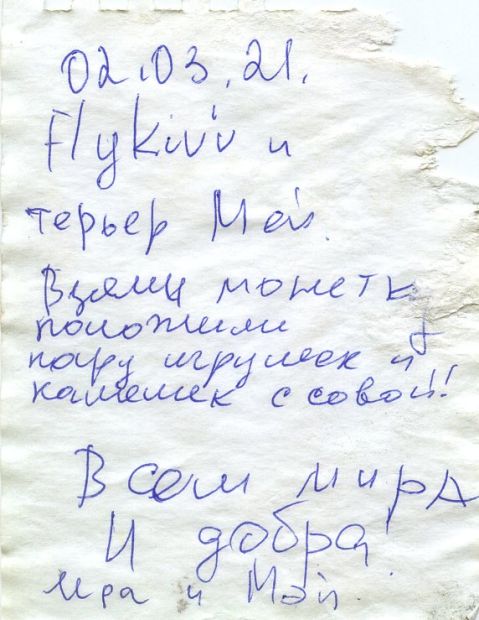 02.03.21.
Flykivi и
терьер Мэй.
Взяли монетку
положили
пару игрушек и
камешек с совой!!
Всем мира
И добра!
Ира и Мэй.